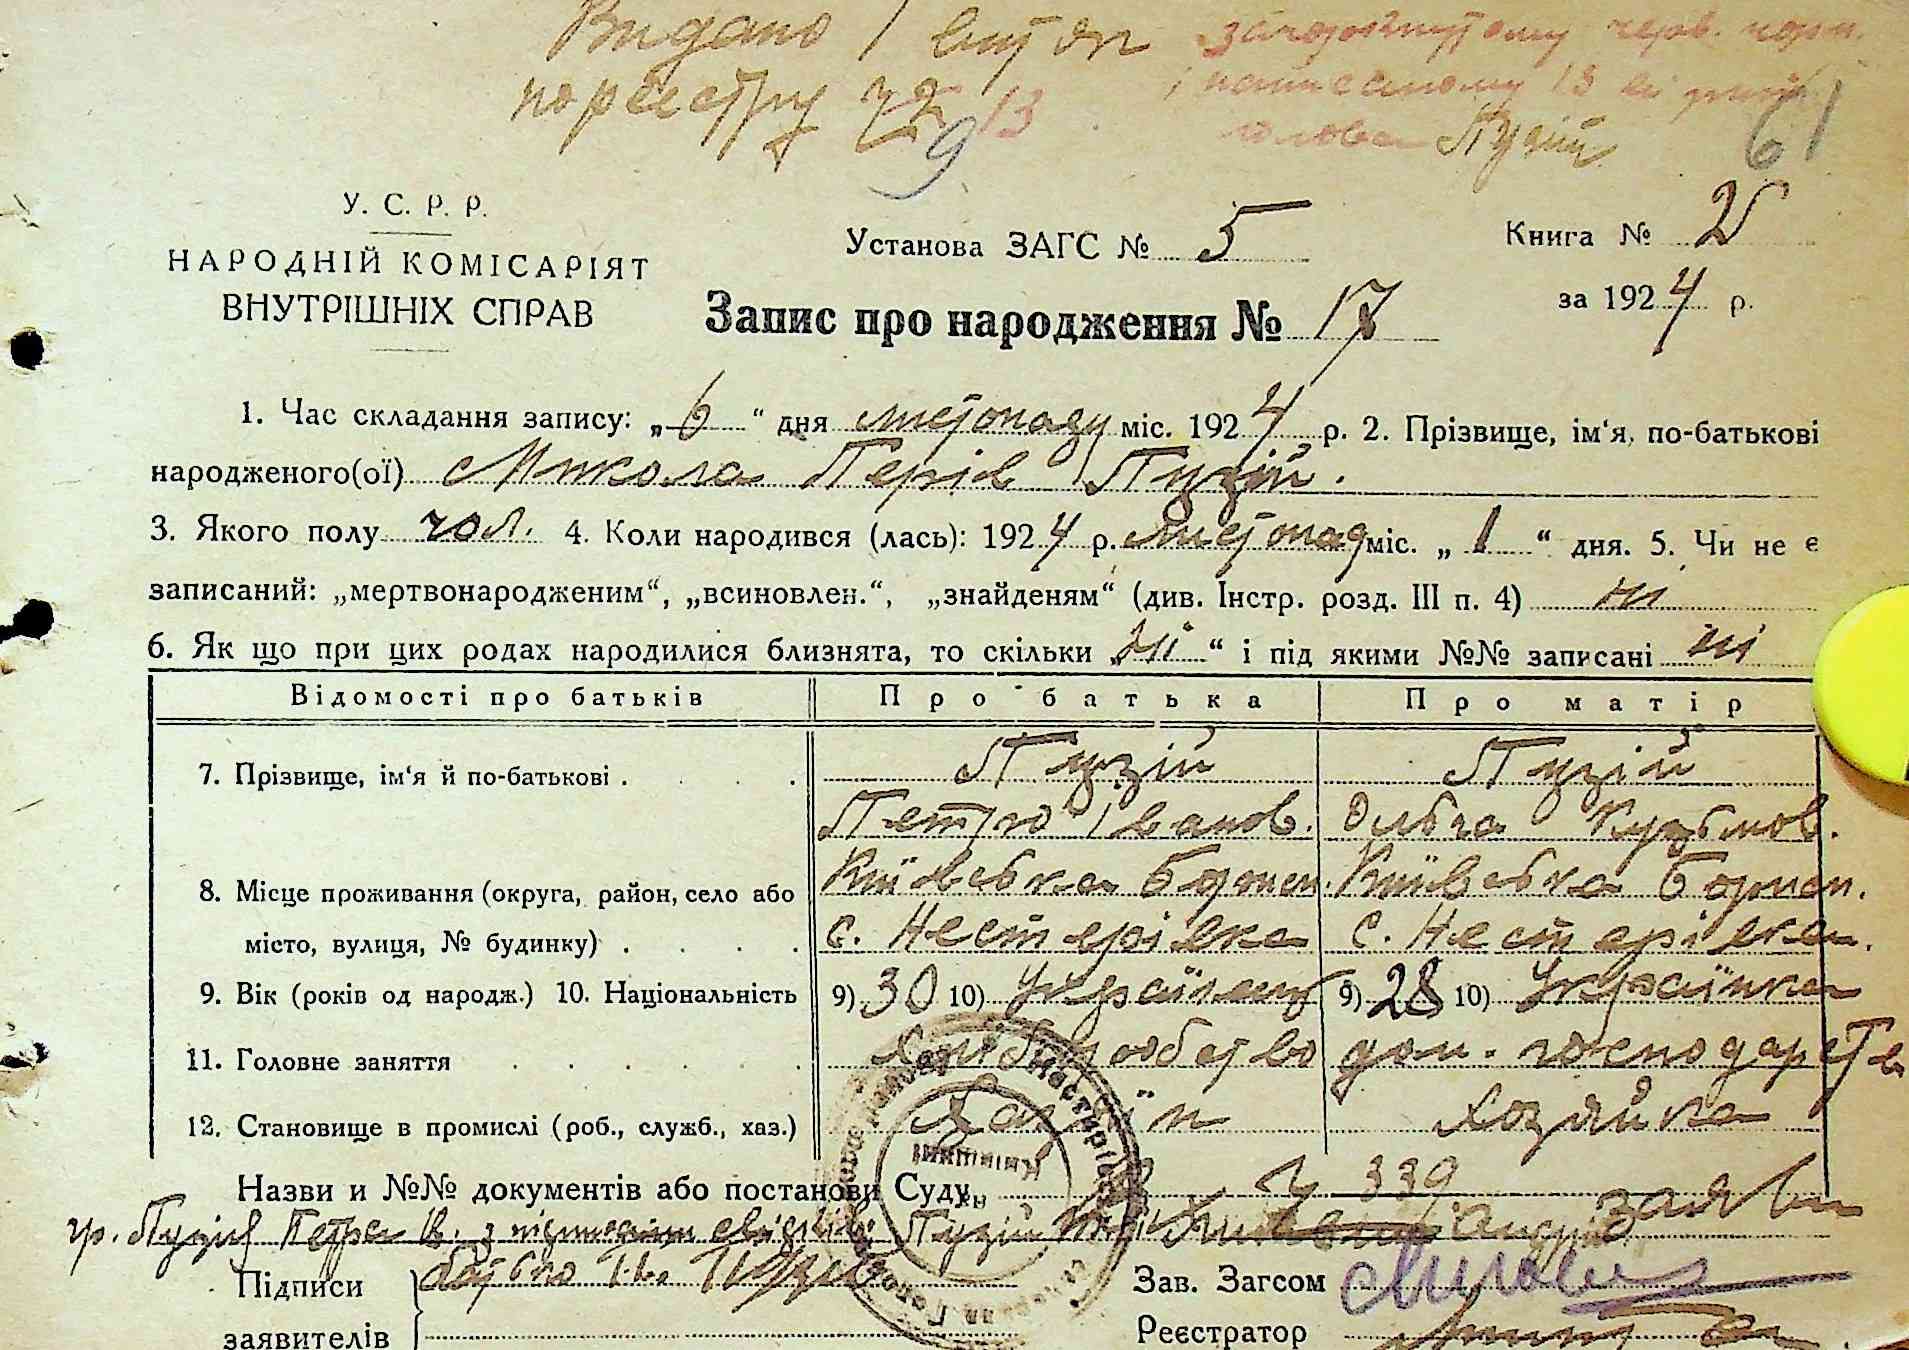 Видано 1 витяг зачеркнутому черв. черн.
по реєстру 72 13 і написаному 13 вірити
9 голова Пузій 61
У. С. Р. Р.
НАРОДНІЙ КОМІСАРІЯТ
ВНУТРІШНІХ СПРАВ
Установа ЗАГС № 5
Книга № 2
за 1924 р.
Запис про народження № 17
1. Час складання запису: „6“ дня листопаду міс. 1924 р. 2. Прізвище, ім'я, по-батькові
народженого(ої) Микола Перів Пузій.
3. Якого полу чол. 4. Коли народився (лась): 1924 р. листопад міс. „1“ дня. 5. Чи не є
записаний: „мертвонародженим“, „всиновлен.“, „знайденям“ (див. Інстр. розд. III п. 4) ні
6. Як що при цих родах народилися близнята, то скільки „ні“ і під якими №№ записані ні
Відомості про батьків Про батька Про матір
7. Прізвище, ім'я й по-батькові . . . . Пузій Пузій
Петро Іванов. Ольга Кузьмов.
8. Місце проживання (округа, район, село або Київська Боришп. Київська Боришп.
місто, вулиця, № будинку) . . . . с. Нестерівка с. Нестерівка.
9. Вік (років од народж.) 10. Національність 9) 30 10) Українець 9) 28 10) Українка
11. Головне заняття . . . . . Хліборобство дом. господарств
12. Становище в промислі (роб., служб., хаз.) Хазяїн Хозяйка
Назви и №№ документів або постанови Суду 339 заяви
гр. Пузія Петра Ів. з підписами свідків: Пузій Андрій
Підписи батько П. І. Пузій Зав. Загсом
заявителів Реєстратор